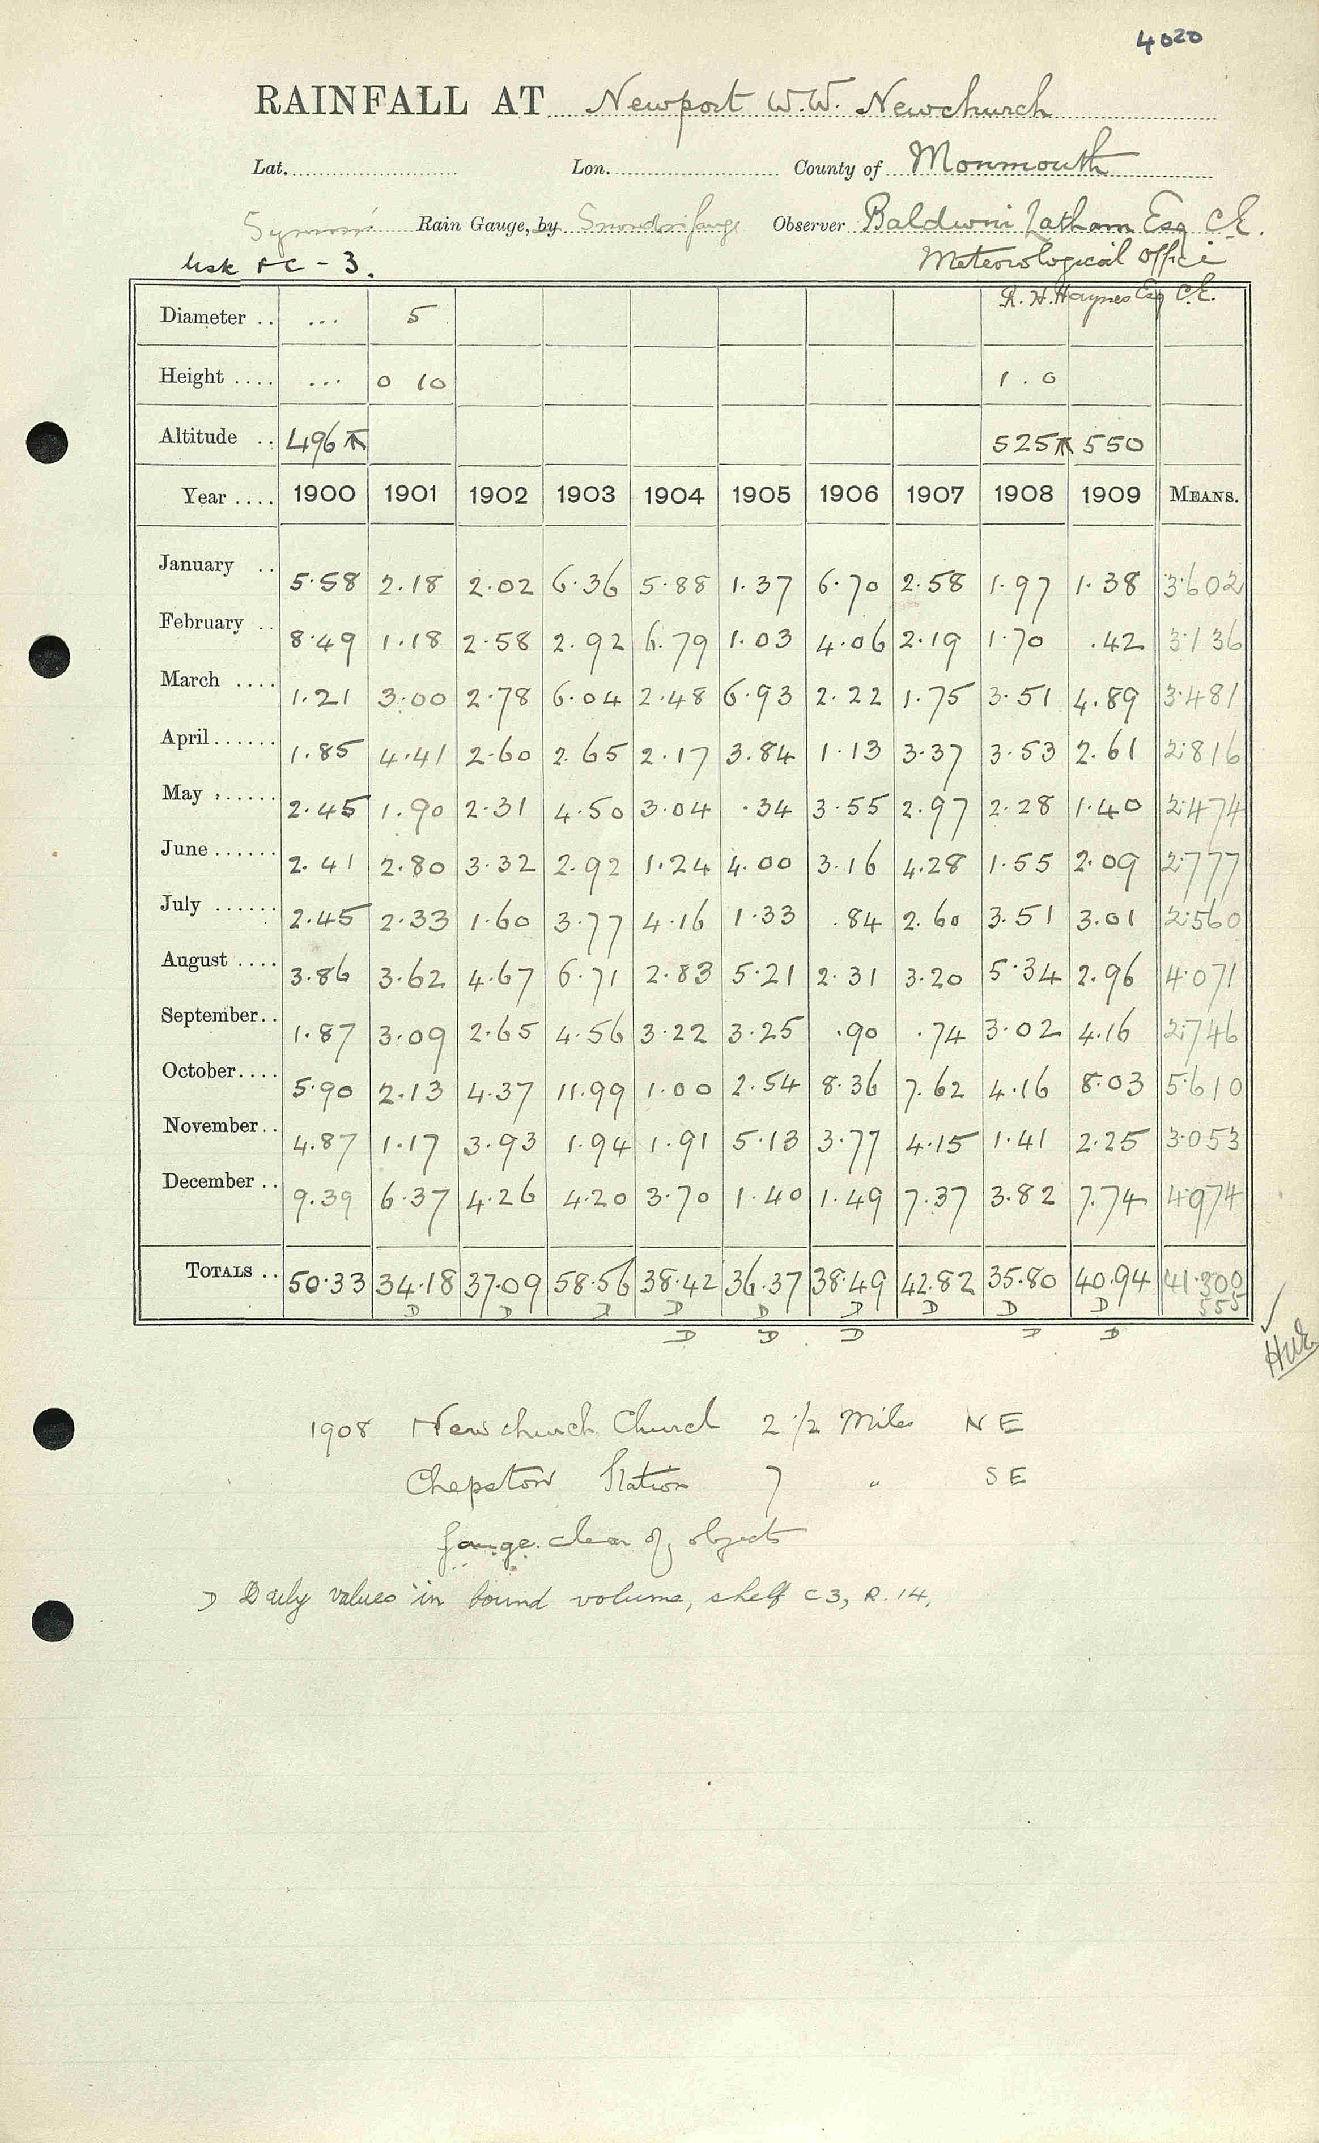 4020
RAINFALL AT Newport W.W. Newchurch
Lat. Lon. County of Monmouth
Rain Gauge, by Snowdon gauge Observer Baldwin Latham Esq C.E.
Usk &c - 3. Meteorological Office
R. H. Haynes Esq C.E.
Diameter .. ... 5
Height .... ... 0 10 1.0
Altitude .. 496 525 550
Year .... 1900 1901 1902 1903 1904 1905 1906 1907 1908 1909 MEANS.
January .. 5.58 2.18 2.02 6.36 5.88 1.37 6.70 2.58 1.97 1.38 3.602
February .. 8.49 1.18 2.58 2.92 6.79 1.03 4.06 2.19 1.70 .42 3.136
March .... 1.21 3.00 2.78 6.04 2.48 6.93 2.22 1.75 3.51 4.89 3.481
April ...... 1.85 4.41 2.60 2.65 2.17 3.84 1.13 3.37 3.53 2.61 2.816
May ...... 2.45 1.90 2.31 4.50 3.04 .34 3.55 2.97 2.28 1.40 2.474
June ...... 2.41 2.80 3.32 2.92 1.24 4.00 3.16 4.28 1.55 2.09 2.777
July ...... 2.45 2.33 1.60 3.77 4.16 1.33 .84 2.60 3.51 3.01 2.560
August .... 3.86 3.62 4.67 6.71 2.83 5.21 2.31 3.20 5.34 2.96 4.071
September .. 1.87 3.09 2.65 4.56 3.22 3.25 .90 .74 3.02 4.16 2.746
October .... 5.90 2.13 4.37 11.99 1.00 2.54 8.36 7.62 4.16 8.03 5.610
November .. 4.87 1.17 3.93 1.94 1.91 5.13 3.77 4.15 1.41 2.25 3.053
December .. 9.39 6.37 4.26 4.20 3.70 1.40 1.49 7.37 3.82 7.74 4.974
TOTALS .. 50.33 34.18 37.09 58.56 38.42 36.37 38.49 42.82 35.80 40.94 41.300
D D D D D D D D D 555
D D D D D
1908 Newchurch Church 2 1/2 Miles NE
Chepstow Station 7 " SE
Gauge clear of objects
D Daily values in bound volume, shelf C3, R. 14.